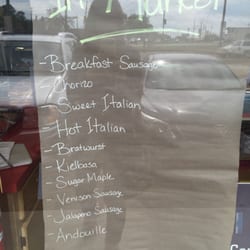 In Market
- Breakfast Sausage
- Chorizo
- Sweet Italian
- Hot Italian
- Bratwurst
- Kielbasa
- Sugar Maple
- Venison Sausage
- Jalapeno Sausage
- Andouille